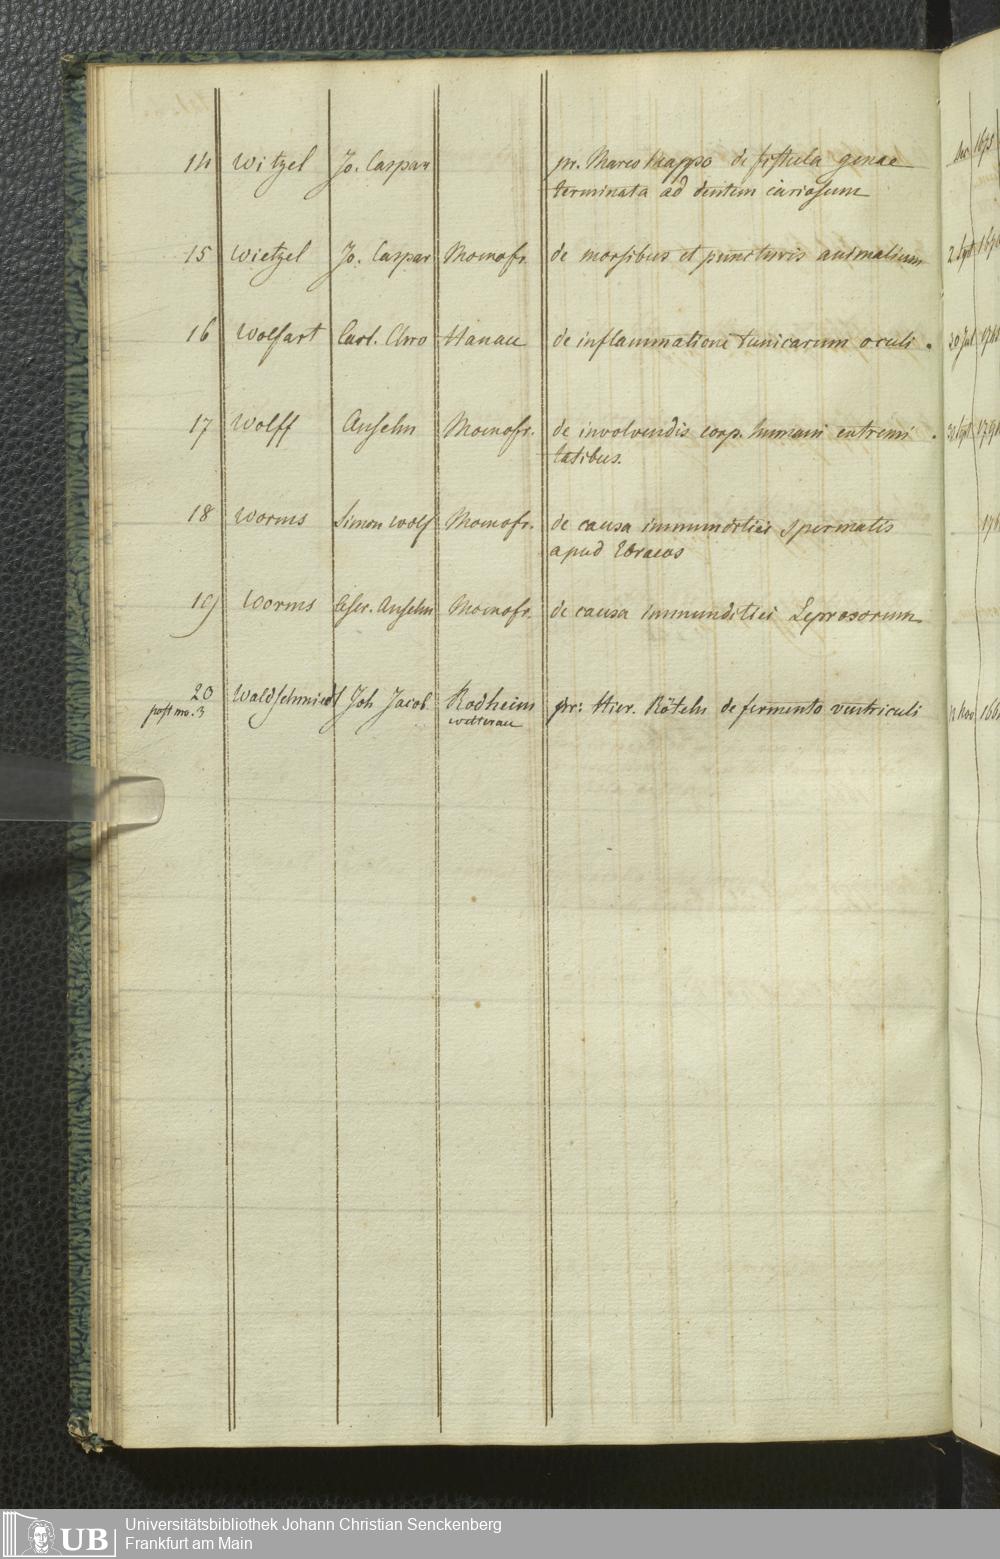 14 Witzel Jo. Caspar pr. Marco Mappo de fistula genae
terminata ad dentem cariosum
15 Wietzel Jo. Caspar Moenofr. de morsibus et puncturis animalium
16 Wolfart Carl. Chro Hanau de inflammatione tunicarum oculi.
17 Wolff Anselm Moenofr. de involvendis corp. humani extremi
tatibus.
18 Worms Simon Wolf Moenofr. de causa immunditiei spermatis
apud Ebraeos
19 Worms Anselm Moenofr. de causa immunditiei Leprosorum
20 Waldschmiedt Joh Jacob Rodheim pr: Hier. Röteln de fermento ventriculi
post no. 3 wetterau
Universitätsbibliothek Johann Christian Senckenberg
Frankfurt am Main
UB